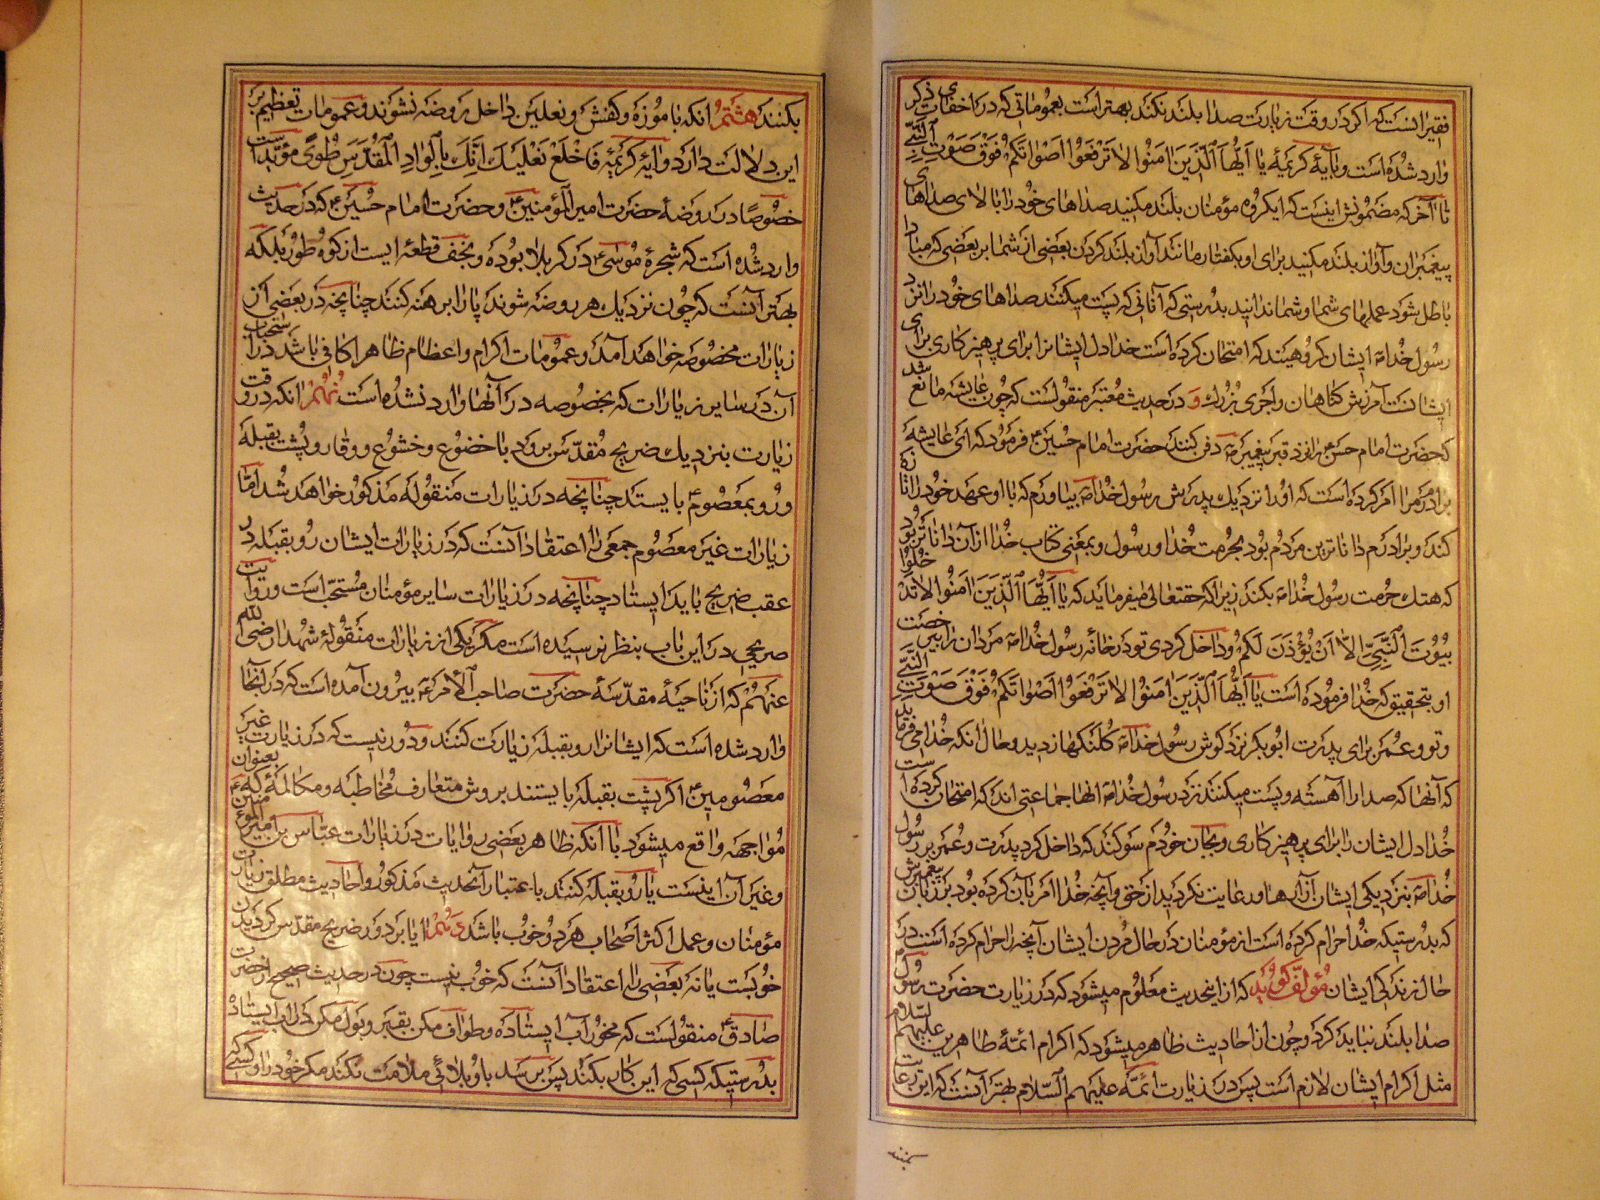 فقیر آنست که اگر در وقت زیارت صدا بلند نکنند بهتر است بعموماتی که در اخفای ذکر
وارد شده است و بآیهٔ کریمهٔ یا اَیُّهَا اَلَّذینَ امَنُوا لا تَرْفَعُوا اَصْواتَکُمْ فَوْقَ صَوْتِ النَّبِیِّ
تا آخر که مضمونش اینست که ایکروه مؤمنان بلند مکنید صداهای خود را بالای صداهای
پیغمبران و آواز بلند مکنید برای او بکفتار مانند آواز بلند کردن بعضی از شما بر بعضی که مبادا
باطل شود عملهای شما و شما ندانید بدرستی که آنانی که پست میکنند صداهای خود را نزد
رسول خدا ایشان کروهیند که امتحان کرده است خدا دل ایشانرا برای پرهیزکاری برای
ایشانست آمرزش کناهان و اجری بزرك و در حدیث معتبر منقولست که چون عایشه مانع شد
که حضرت امام حسن را نزد قبر پیغمبر دفن کنند حضرت امام حسین فرمود که ای عایشه
برادرم مرا امر کرده است که او را نزدیك پدرش رسول خدا بیاورم که با او عهد خود را تازه
کند و برادرم داناترین مردم بود بحرمت خدا و رسول و بمعنی کتاب خدا از آن داناتر بود
که هتك حرمت رسول خدا بکند زیرا که حقتعالی میفرماید که یا اَیُّهَا اَلَّذینَ امَنُوا لا تَدْخُلُوا
بُیُوتَ اَلنَّبِیِّ اِلّا اَنْ یُؤْذَنَ لَکُمْ و داخل کردی تو در خانهٔ رسول خدا مردان را بیرخصت
او بتحقیق که خدا فرموده است یا اَیُّهَا اَلَّذینَ امَنُوا لا تَرْفَعُوا اَصْواتَکُمْ فَوْقَ صَوْتِ النَّبِیِّ
و تو و عمر برای پدرت ابوبکر نزد کوش رسول خدا کلنکها زدید و حال آنکه خدا میفرماید
که آنها که صدا را آهسته و پست میکنند نزد رسول خدا آنها جماعتی اند که امتحان کرده است
خدا دل ایشان را برای پرهیزکاری و بجان خودم سوکند که داخل کرد پدرت و عمر بر رسول
خدا بنزدیکی ایشان آزارها و رعایت نکردید از حق و آنچه خدا امر بآن کرده بود بر زبان پیغمبرش
که بدرستیکه خدا حرام کرده است از مؤمنان در حال مردن ایشان آنچه را حرام کرده است در
حال زندکی ایشان مؤلف کوید که از اینحدیث معلوم میشود که در زیارت حضرت رسول
صدا بلند نباید کرد و چون از احادیث ظاهر میشود که اکرام ائمهٔ طاهرین علیهم السلام
مثل اکرام ایشان لازم است پس در زیارت ائمّه علیهم السّلام بهتر آنست که این رعایت
بکنند
بکنند هشتم آنکه با موزه و کفش و نعلین داخل روضه نشوند و عمومات تعظیم بر
این دلالت دارد و آیهٔ کریمهٔ فَاخْلَعْ نَعْلَیْكَ اِنَّكَ بِالْوادِ الْمُقَدَّسِ طُویً مؤید است
خصوصًا در روضهٔ حضرت امیر المؤمنین و حضرت امام حسین که در حدیث
وارد شده است که شجرهٔ موسی در کربلا بوده و نجف قطعهٔ ایست از کوه طور بلکه
بهتر آنست که چون نزدیك هر روضه شوند پا را برهنه کنند چنانچه در بعضی از
زیارات مخصوصه خواهد آمد و عمومات اکرام و اعظام ظاهرا کافی باشد در استحباب
آن در سایر زیارات که بخصوصه در آنها وارد نشده است نُهُمْ آنکه در وقت
زیارت بنزدیك ضریح مقدّس برود با خضوع و خشوع و وقار و پشت بقبله
و رو بمعصوم بایستد چنانچه در زیارات منقوله مذکور خواهد شد امّا
زیارات غیر معصوم جمعی را اعتقاد آنست که در زیارات ایشان رو بقبله در
عقب ضریح باید ایستاد چنانچه در زیارات سایر مؤمنان مستحبّ است و روایت
صریحی در این باب بنظر نرسیده است مکر یکی از زیارات منقولهٔ شهدا رضی الله
عنهم که از ناحیهٔ مقدّسهٔ حضرت صاحب الأمر بیرون آمده است که در آنجا
وارد شده است که ایشانرا رو بقبله زیارت کنند و دور نیست که در زیارت غیر
معصومین اکر پشت بقبله بایستند بروش متعارف مخاطبه و مکالمهٔ که بعنوان
مواجهه واقع میشود با آنکه ظاهر بعضی روایات در زیارات عبّاس بن امیر المؤمنین
و غیر آن اینست یا رو بقبله کنند باعتبار آنحدیث مذکور و احادیث مطلق زیارت
مؤمنان و عمل اکثر اصحاب هر دو خوب باشد دَهُمْ آیا بر دور ضریح مقدس کردیدن
خوبست یا نه بعضی را اعتقاد آنست که خوب نیست چون در حدیث صحیح از حضرت
صادق منقولست که مخور آب ایستاده و طواف مکن بقبر و بول مکن در آب ایستاده
بدرستیکه کسی که این کار بکند پس برسد باو بلائی ملامت نکند مکر خود را و کسی